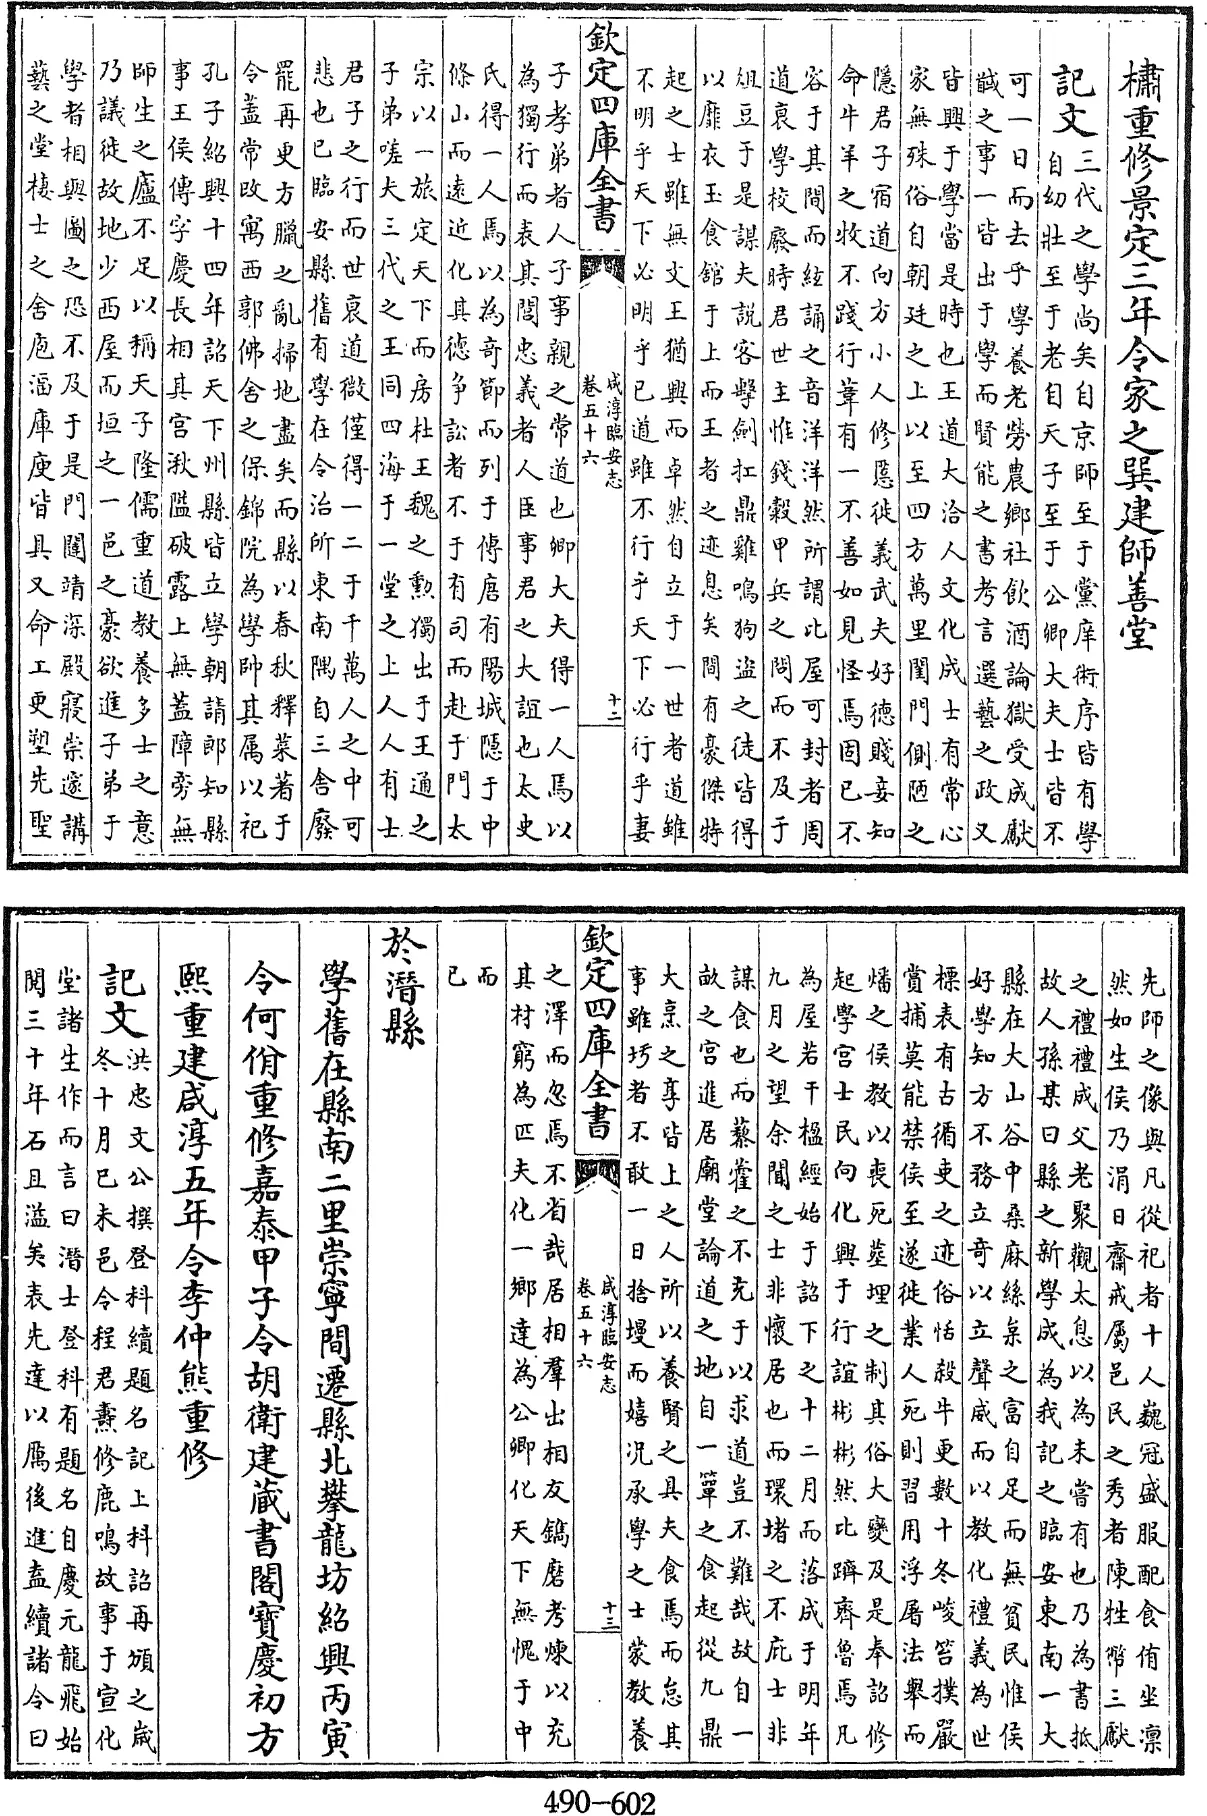 橚重修景定三年令家之巽建師善堂
記文三代之學尚矣自京師至于黨庠術序皆有學
自幼壯至于老自天子至于公卿大夫士皆不
可一日而去乎學養老勞農鄉社飲酒論獄受成獻
馘之事一皆出于學而賢能之書考言選藝之政又
皆興于學當是時也王道大洽人文化成士有常心
家無殊俗自朝廷之上以至四方萬里閨門側陋之
隱君子宿道向方小人修慝徙義武夫好德賤妾知
命牛羊之牧不踐行葦有一不善如見怪焉固已不
容于其間而絃誦之音洋洋然所謂比屋可封者周
道衰學校廢時君世主惟錢穀甲兵之問而不及于
俎豆于是謀夫說客擊劍扛鼎雞鳴狗盗之徒皆得
以靡衣玉食舘于上而王者之迹息矣間有豪傑特
起之士雖無文王猶興而卓然自立于一世者道雖
不明乎天下必明乎已道雖不行乎天下必行乎妻
欽定四庫全書
咸淳臨安志
卷五十六
十二
子孝弟者人子事親之常道也卿大夫得一人焉以
為獨行而表其閭忠義者人臣事君之大誼也太史
氏得一人焉以為奇節而列于傳唐有陽城隱于中
條山而遠近化其德争訟者不于有司而赴于門太
宗以一旅定天下而房杜王魏之勲獨出于王通之
子弟嗟夫三代之王同四海于一堂之上人人有士
君子之行而世衰道微僅得一二于千萬人之中可
悲也已臨安縣舊有學在令治所東南隅自三舍廢
罷再更方臘之亂掃地盡矣而縣以春秋釋菜著于
令盖常攺寓西郭佛舍之保錦院為學帥其属以祀
孔子紹興十四年詔天下州縣皆立學朝請郎知縣
事王侯傳字慶長相其宫湫隘破露上無蓋障旁無
師生之廬不足以稱天子隆儒重道教養多士之意
乃議徙故地少西屋而垣之一邑之豪欲進子弟于
學者相與圖之恐不及于是門闥靖深殿寢崇邃講
藝之堂棲士之舍庖湢庫庾皆具又命工更塑先聖
先師之像與凡從祀者十人巍冠盛服配食侑坐凛
然如生侯乃涓日齋戒屬邑民之秀者陳牲幣三獻
之禮禮成父老聚觀太息以為未嘗有也乃為書抵
故人孫某曰縣之新學成為我記之臨安東南一大
縣在大山谷中桑麻絲枲之富自足而無貧民惟侯
好學知方不務立奇以立聲威而以教化禮義為世
標表有古循吏之迹俗恬殺牛更數十冬峻笞撲嚴
賞捕莫能禁侯至遂徙業人死則習用浮屠法舉而
燔之侯教以喪死塟埋之制其俗大變及是奉詔修
起學宫士民向化興于行誼彬彬然比躋齊魯焉凡
為屋若干楹經始于詔下之十二月而落成于明年
九月之望余聞之士非懷居也而環堵之不庇士非
謀食也而藜藿之不充于以求道豈不難哉故自一
畝之宫進居廟堂論道之地自一簞之食起從九鼎
大烹之享皆上之人所以養賢之具夫食焉而怠其
事雖圬者不敢一日捨墁而嬉况承學之士蒙教養
欽定四庫全書
咸淳臨安志
卷五十六
十三
之澤而忽焉不省哉居相羣出相友鐫磨考煉以充
其材窮為匹夫化一鄉達為公卿化天下無愧于中
而
已
於潛縣
學舊在縣南二里崇寧間遷縣北攀龍坊紹興丙寅
令何佾重修嘉泰甲子令胡衛建蔵書閣寳慶初方
熙重建咸淳五年令李仲熊重修
記文洪忠文公撰登科續題名記上科詔再頒之嵗
冬十月已未邑令程君燾修鹿鳴故事于宣化
堂諸生作而言曰潛士登科有題名自慶元龍飛始
閱三十年石且溢矣表先達以厲後進盍續諸令曰
490-602